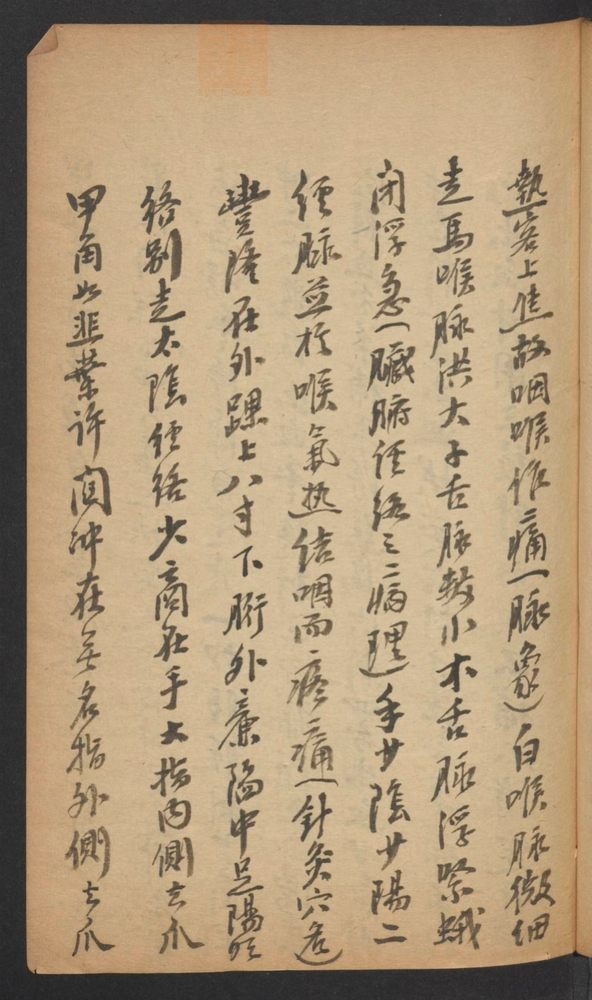 熱客上焦故咽喉作痛(脉象)白喉脉微細
走馬喉脉洪大子舌脉数小木舌脉浮緊蛾
闭浮急(臟腑經絡之病理)手少陰少陽二
經脉並於喉氣热结咽而疼痛(針灸穴道)
豐隆在外踝上八寸下胻外廉陷中足陽明
络别走太陰經络少商在手大指内侧去爪
甲角如韭葉许關冲在無名指外侧去爪